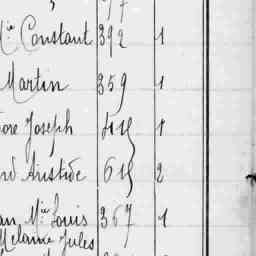 Mie Constant 392 1
Martin 359 1
ore Joseph 419 1
rd Aristide 619 2
an, Mie Louis 367 1
Melanie Jules